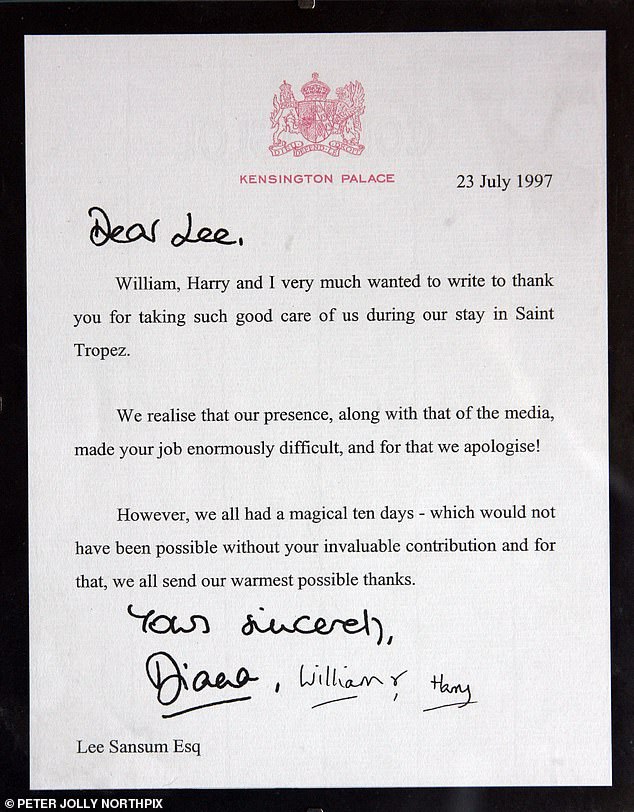 KENSINGTON PALACE
23 July 1997
Dear Lee,
William, Harry and I very much wanted to write to thank
you for taking such good care of us during our stay in Saint
Tropez.
We realise that our presence, along with that of the media,
made your job enormously difficult, and for that we apologise!
However, we all had a magical ten days - which would not
have been possible without your invaluable contribution and for
that, we all send our warmest possible thanks.
Yours sincerely,
Diana, William &, Harry
Lee Sansum Esq
© PETER JOLLY NORTHPIX